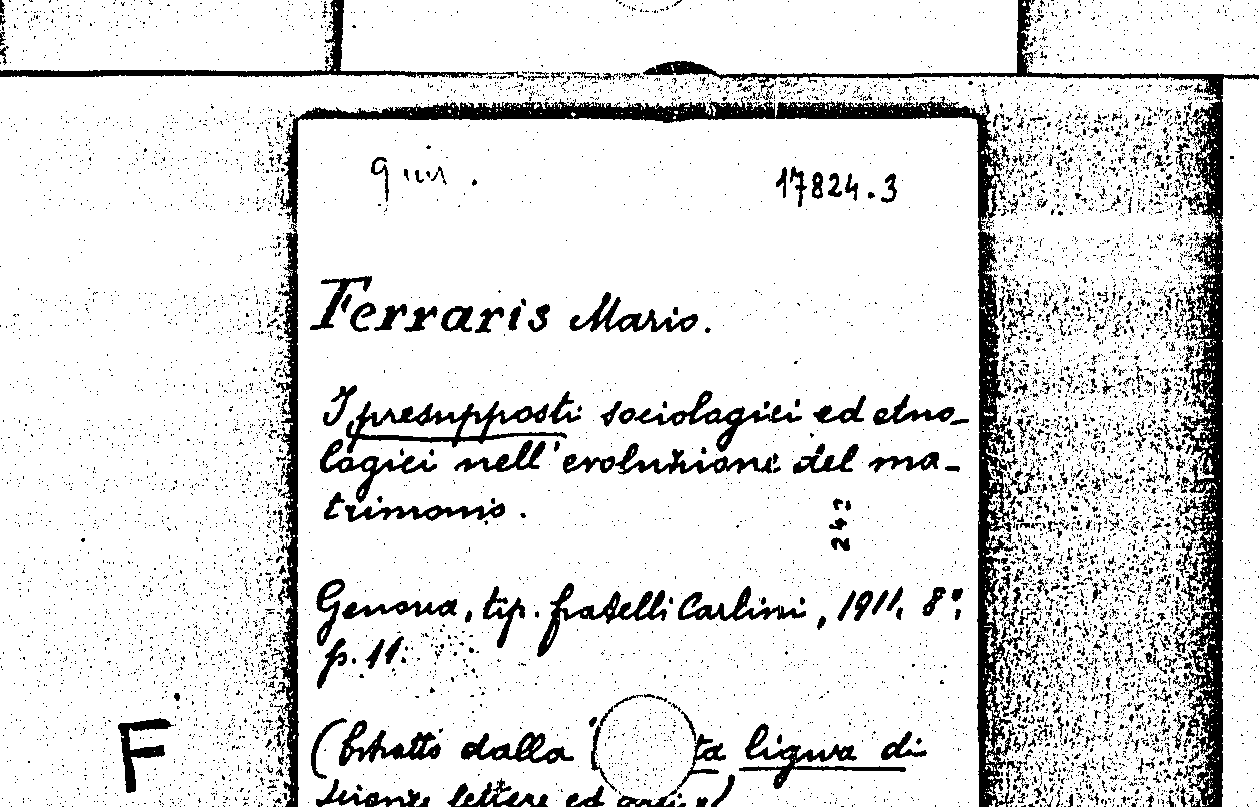 17824.3
Ferraris Mario.
I presupposti sociologici ed etno-
logici nell'evoluzione del ma-
trimonio.
242
Genova, tip. fratelli Carlini, 1911, 8°,
p. 11.
F
(Estratto dalla ta ligure di
scienze lettere ed arti)